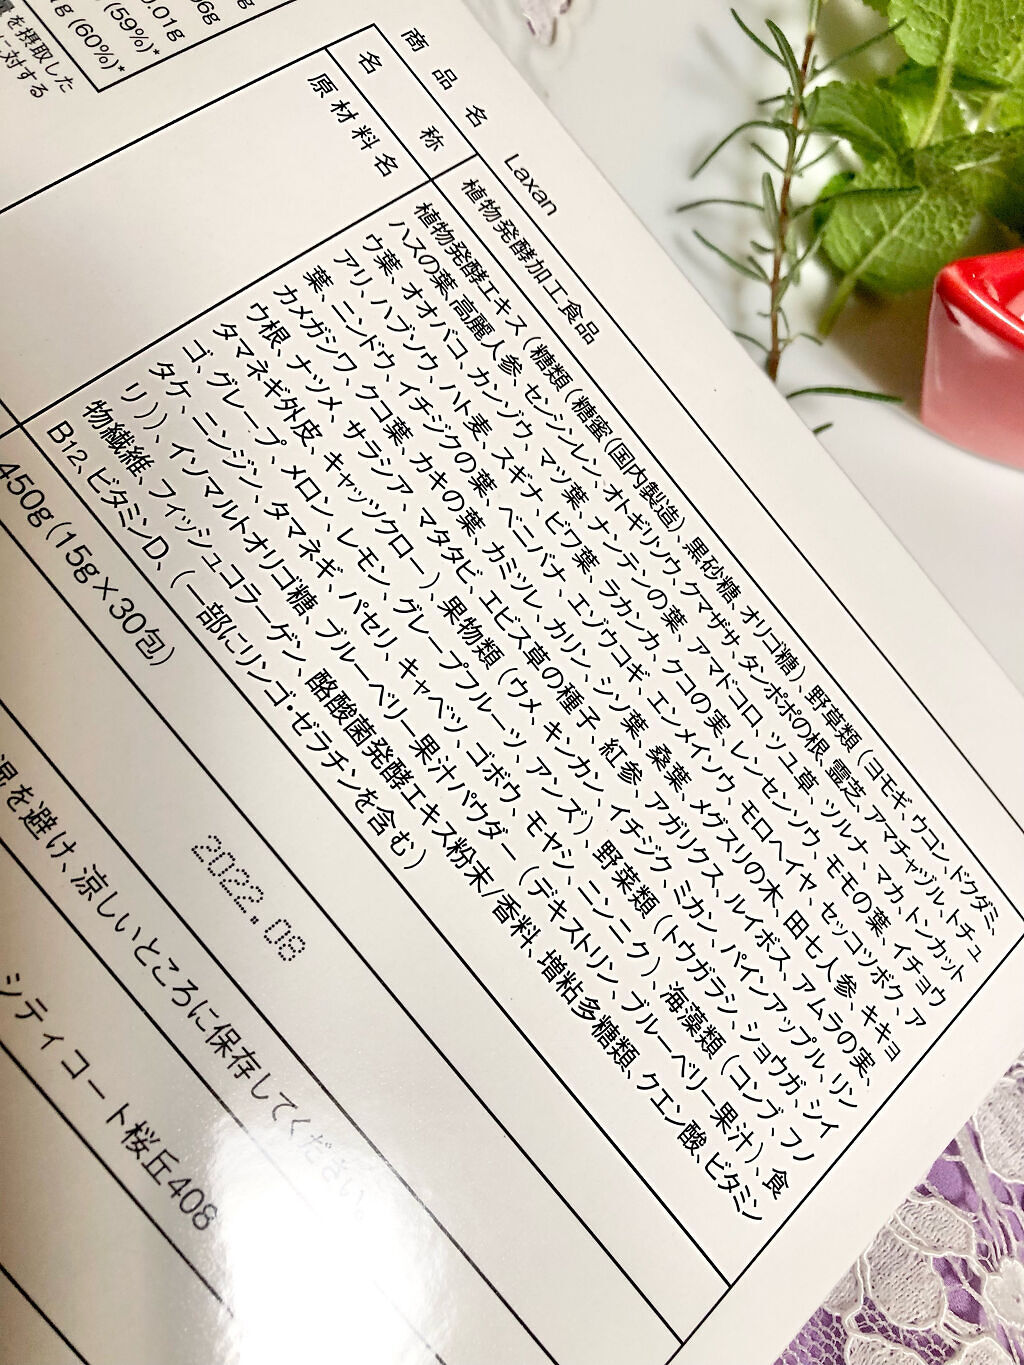 96g
0.01g
(59%)*
g (60%)*
量を摂取した
に対する
商品名 Laxan
名称 植物発酵加工食品
原材料名 植物発酵エキス(糖類(糖蜜(国内製造)、黒砂糖、オリゴ糖)、野草類(ヨモギ、ウコン、ドクダミ、
ハスの葉、高麗人参、センシンレン、オトギリソウ、クマザサ、タンポポの根、霊芝、アマチャヅル、トチュ
ウ葉、オオバコ、カンゾウ、マツ葉、ナンテンの葉、アマドコロ、ツユ草、ツルナ、マカ、トンカット
アリ、ハブソウ、ハト麦、スギナ、ビワ葉、ラカンカ、クコの実、レンセンソウ、モモの葉、イチョウ
葉、ニンドウ、イチジクの葉、ベニバナ、エゾウコギ、エンメイソウ、モロヘイヤ、セッコツボク、ア
カメガシワ、クコ葉、カキの葉、カミツレ、カリン、シソ葉、桑葉、メグスリの木、田七人参、キキョ
ウ根、ナツメ、サラシア、マタタビ、エビス草の種子、紅参、アガリクス、ルイボス、アムラの実、
タマネギ外皮、キャッツクロー)、果物類(ウメ、キンカン、イチジク、ミカン、パインアップル、リン
ゴ、グレープ、メロン、レモン、グレープフルーツ、アンズ)、野菜類(トウガラシ、ショウガ、シイ
タケ、ニンジン、タマネギ、パセリ、キャベツ、ゴボウ、モヤシ、ニンニク)、海藻類(コンブ、フノ
リ))、イソマルトオリゴ糖、ブルーベリー果汁パウダー(デキストリン、ブルーベリー果汁)、食
物繊維、フィッシュコラーゲン、酪酸菌発酵エキス粉末/香料、増粘多糖類、クエン酸、ビタミン
B12、ビタミンD、(一部にリンゴ・ゼラチンを含む)
450g(15g×30包)
2022.08
湿を避け、涼しいところに保存してください。
シティコート桜丘408